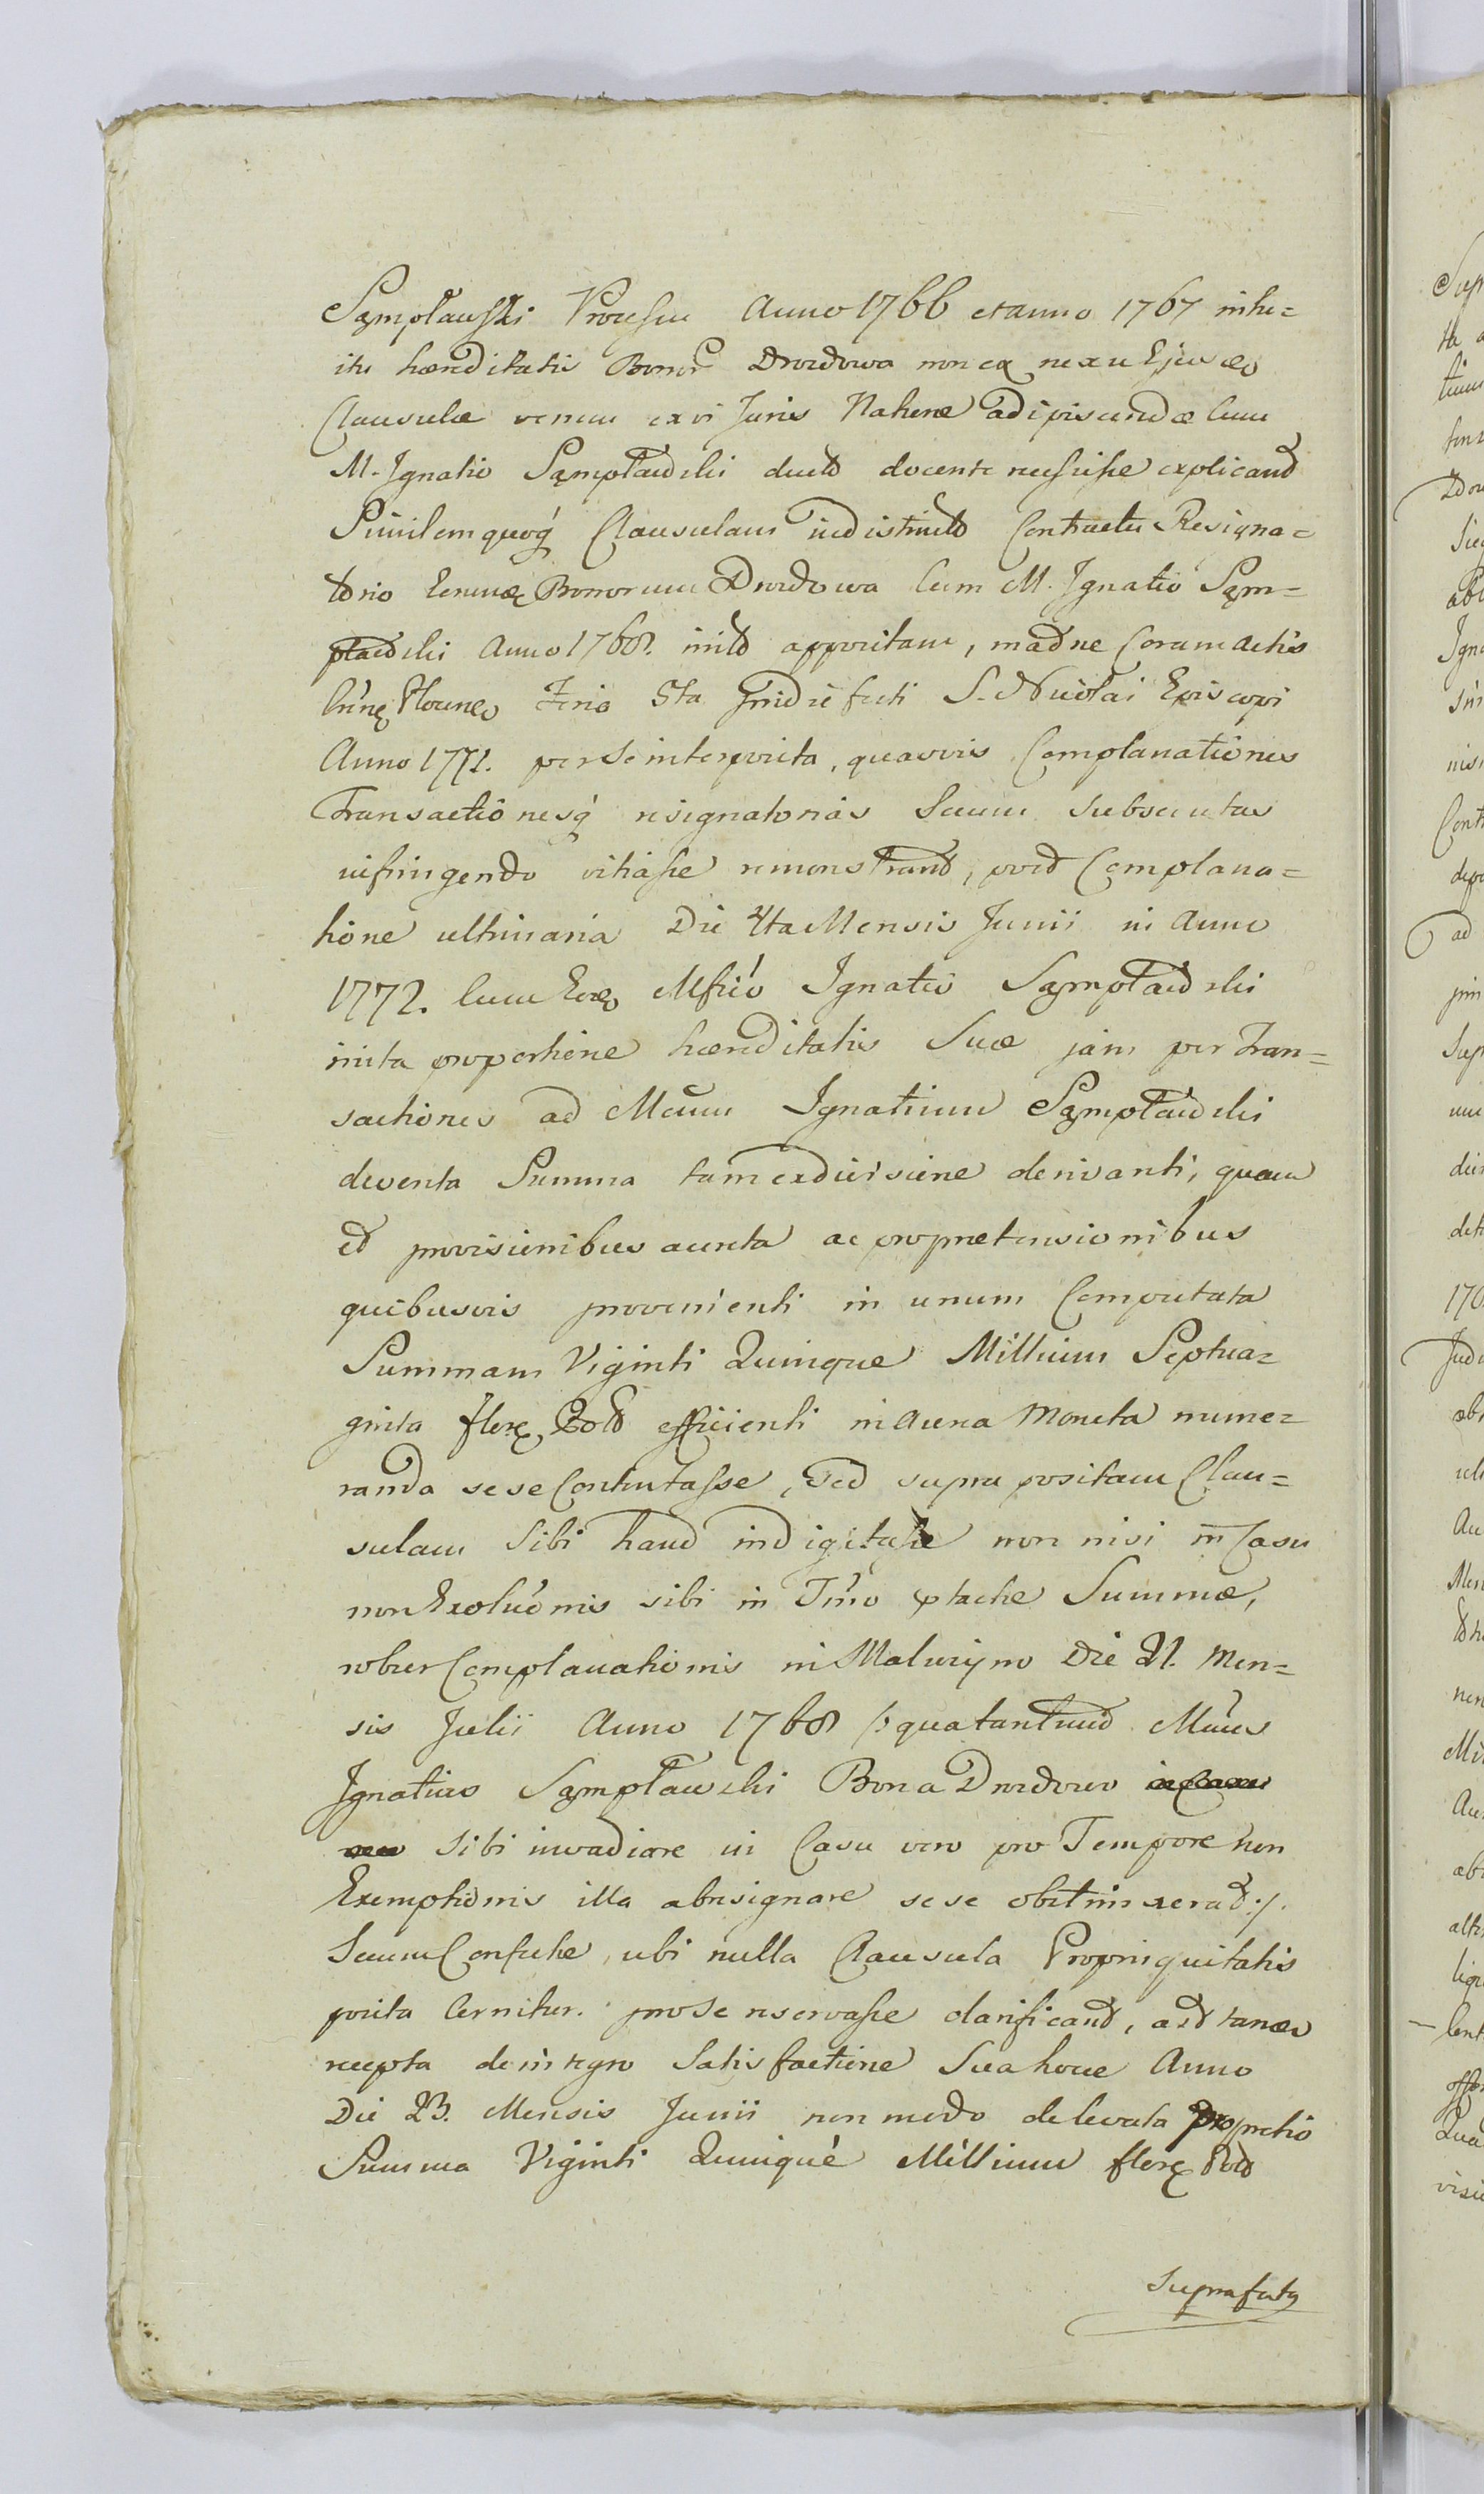 Sąmpławski Processu Anno 1766 et anno 1767 intu=
itu hæreditatis Bonor Drozdowa non ex nexu Ejus
Clausulæ verum ex vi Juris Naturæ adipiscendæ Cum
M. Ignatio Sąmpławski ducto docente necessisse explicand
Similem quoq Clausulam indistincto Contractu Resigna=
torio Bonorum Drozdowa Cum M. Ignatio Sąm=
pławski Anno 1768. inito appositam, coram actis
Feria 5ta pridie festi S. Nicolai Episcopi
Anno 1771. per se interposita, quasvis Complanationes
Transactionesq resignatorias Secum subsecutas
infringendo vitiasse remonstrand, post Complana=
tione ultimaria Die 4ta Mensis Junii in Anno
1772. Cum Mfico Ignatio Sąmpławski
inita proportione hæreditatis Suæ jam per Tran=
sactiones ad Mcum Ignatium Sąmpławski
deventa Summa tam ex divisione derivanti, quam
et provisionibus aucta ac pro prætensionibus
quibusvis provenienti in unum Computata
Summam Viginti Quinque Millium Septua=
ginta flor Pol efficienti in aurea Moneta nume=
randa sese Contentasse, sed supra positam Clau=
sulam Sibi haud indigitasse non nisi in Casu
non Exolucionis sibi in Tmo Summæ,
robur Complanationis in Maluszyno Die 21. Men=
sis Julii Anno 1768 /: qua tantum Mcus
Ignatius Sąmpławski Bona Drozdowo in Casu
sibi invadiare in Casu vero pro Tempore non
Exemptionis illa abresignare sese obstrinxerat :/.
Secum Confectæ, ubi nulla Clausula Propinquitatis
posita Cernitur. pro se reservasse clarificand, ast
recepta de integro Satisfactione Sua hocce Anno
Die 23. Mensis Junii non modo delevata pro pretio
Summa Viginti Quinque Millium flor Pol
Suprafat